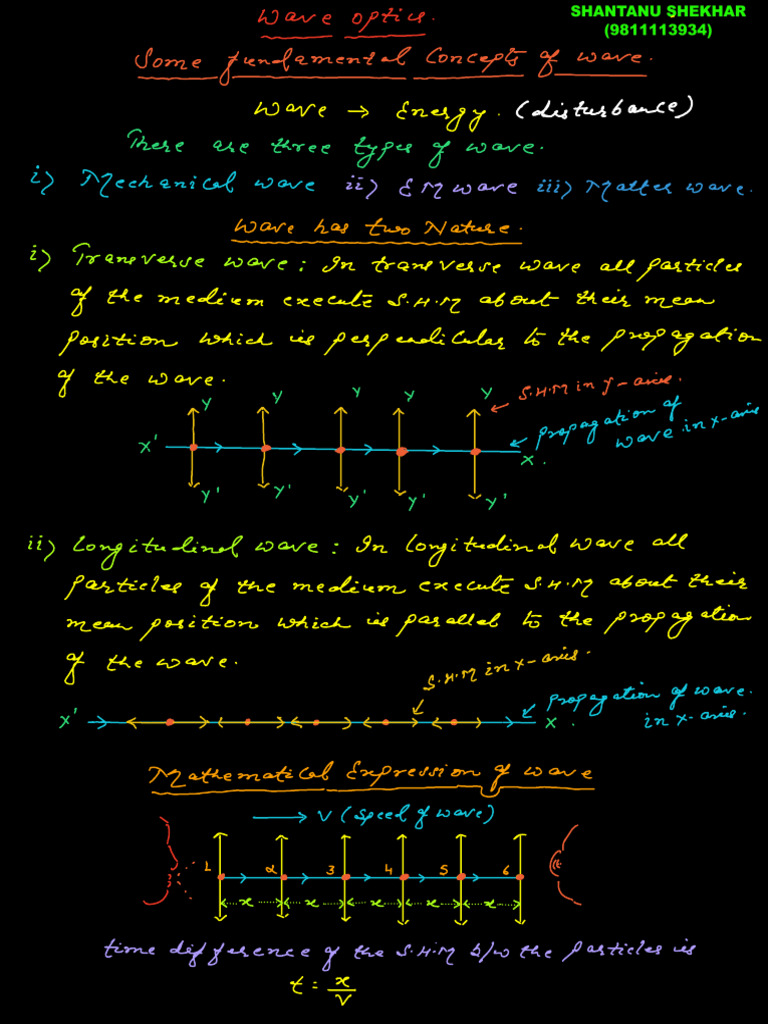 SHANTANU SHEKHAR
(9811113934)
Wave optics.
Some fundamental Concepts of wave.
Wave → Energy. (disturbance)
There are three types of wave.
i) Mechanical wave ii) EM wave iii) Matter wave.
Wave has two Nature.
i) Transverse wave : In transverse wave all particles
of the medium execute S.H.M about their mean
position which is perpendicular to the propagation
of the wave.
Y Y Y Y Y
S.H.M in y-axis.
propagation of
wave in x-axis
X' X.
Y' Y' Y' Y' Y'
ii) Longitudinal wave : In longitudinal wave all
particles of the medium execute S.H.M about their
mean position which is parallel to the propagation
of the wave.
S.H.M in x-axis.
propagation of wave.
in x-axis.
X' X.
Mathematical Expression of wave
→ V (speed of wave)
1 2 3 4 5 6
x x x x x
time difference of the S.H.M b/w the particles is
t = x/V